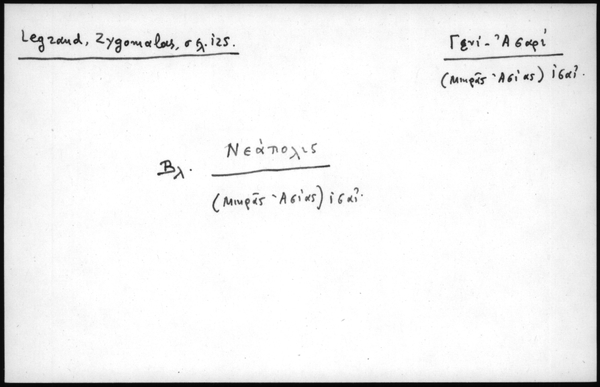 Legrand, Zygomalas, σελ. 125.
Γενί-Ἀσαρί
(Μικρᾶς Ἀσίας)
Βλ. Νεάπολις
(Μικρᾶς Ἀσίας)